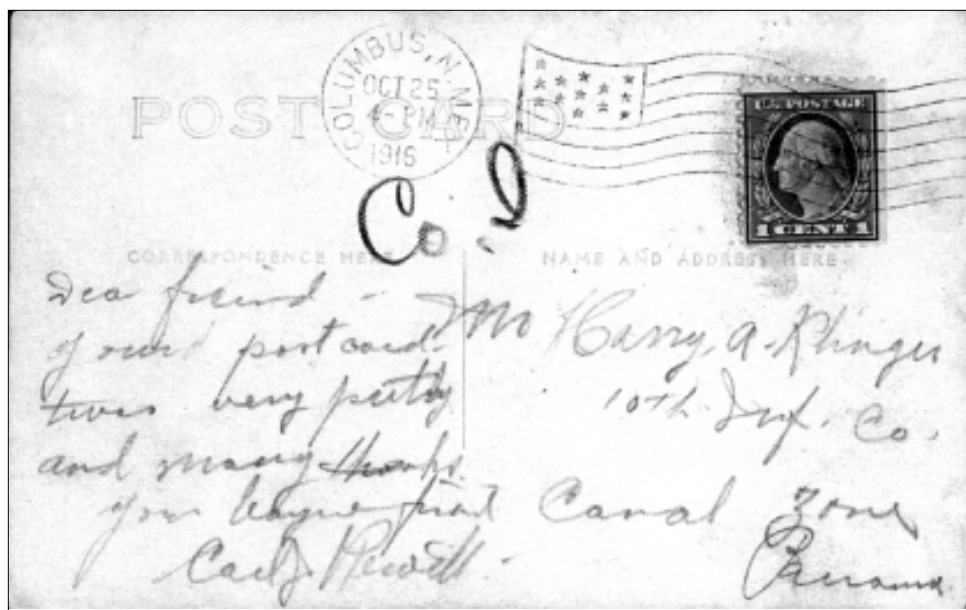 COLUMBUS, N.MEX.
OCT 25
4-PM
1916
POST CARD
U.S. POSTAGE
1 CENT 1
Co. D
CORRESPONDENCE HERE
NAME AND ADDRESS HERE
Dea friend -
your post card
twas very pretty
and many thanks
your friend
Carl
Mr Harry. A. Klinger
10th. Inf. Co.
Canal Zone
Panama.